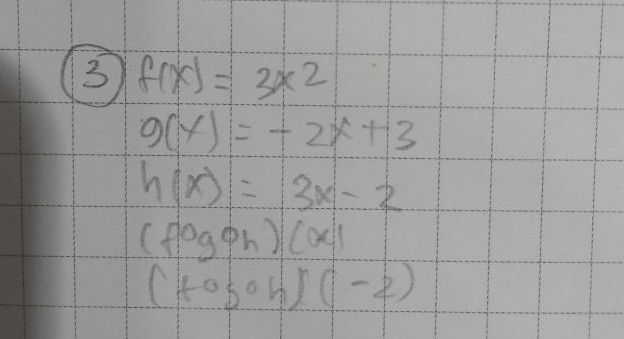 3 f(x) = 3x2
g(x) = -2x+3
h(x) = 3x-2
(fogoh)(x)
(fogoh)(-2)